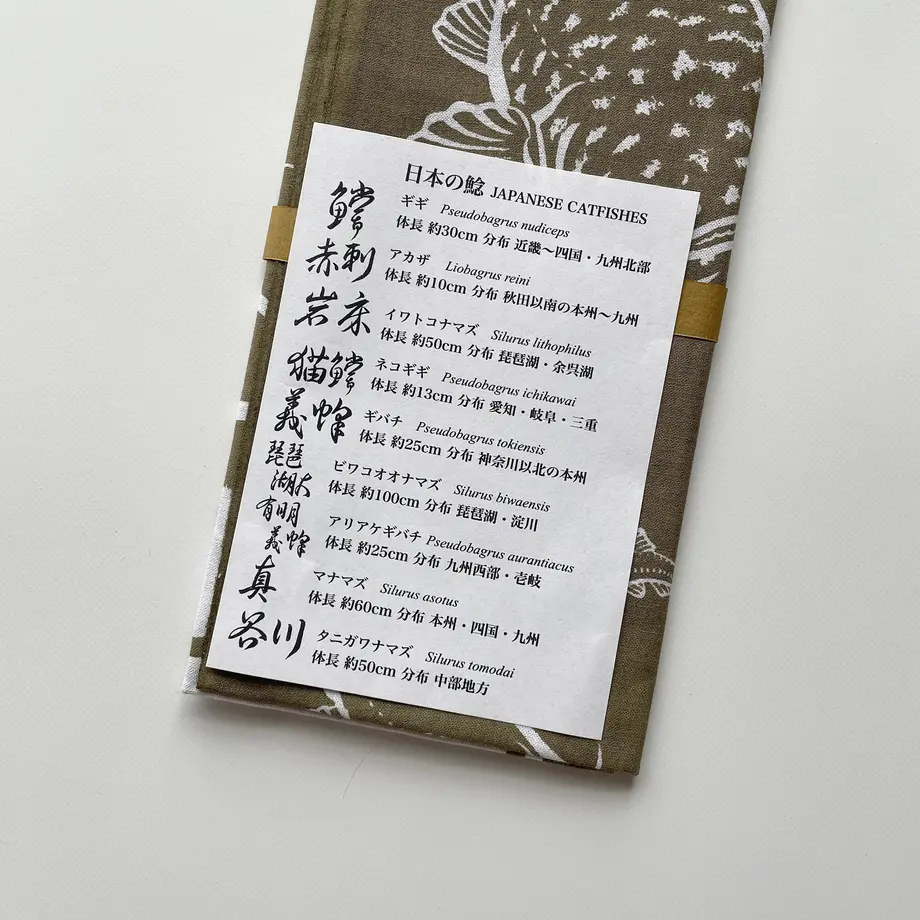 日本の鯰 JAPANESE CATFISHES
鱨
ギギ Pseudobagrus nudiceps
体長 約30cm 分布 近畿～四国・九州北部
赤刺
アカザ Liobagrus reini
体長 約10cm 分布 秋田以南の本州～九州
岩床
イワトコナマズ Silurus lithophilus
体長 約50cm 分布 琵琶湖・余呉湖
猫鱨
ネコギギ Pseudobagrus ichikawai
体長 約13cm 分布 愛知・岐阜・三重
義蜂
ギバチ Pseudobagrus tokiensis
体長 約25cm 分布 神奈川以北の本州
琵琶
湖大
ビワコオオナマズ Silurus biwaensis
体長 約100cm 分布 琵琶湖・淀川
有明
義蜂
アリアケギバチ Pseudobagrus aurantiacus
体長 約25cm 分布 九州西部・壱岐
真
マナマズ Silurus asotus
体長 約60cm 分布 本州・四国・九州
谷川
タニガワナマズ Silurus tomodai
体長 約50cm 分布 中部地方